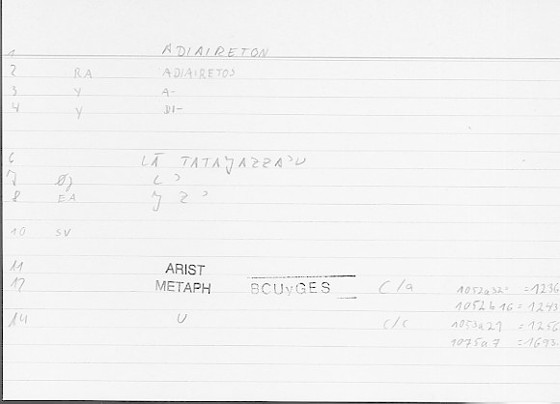 1 ADIAIRETON
2 RA ADIAIRETOS
3 Y A-
4 Y DI-
6 LĀ TATAǦAZZAʾU
7 L ʾ
8 EA Ǧ Z ʾ
10 SV
11 ARIST
12 METAPH BCUyGES C/a 1052a32 =1236
1052b16 =1243
14 U C/C 1053a21 =1256
1075a7 =1693